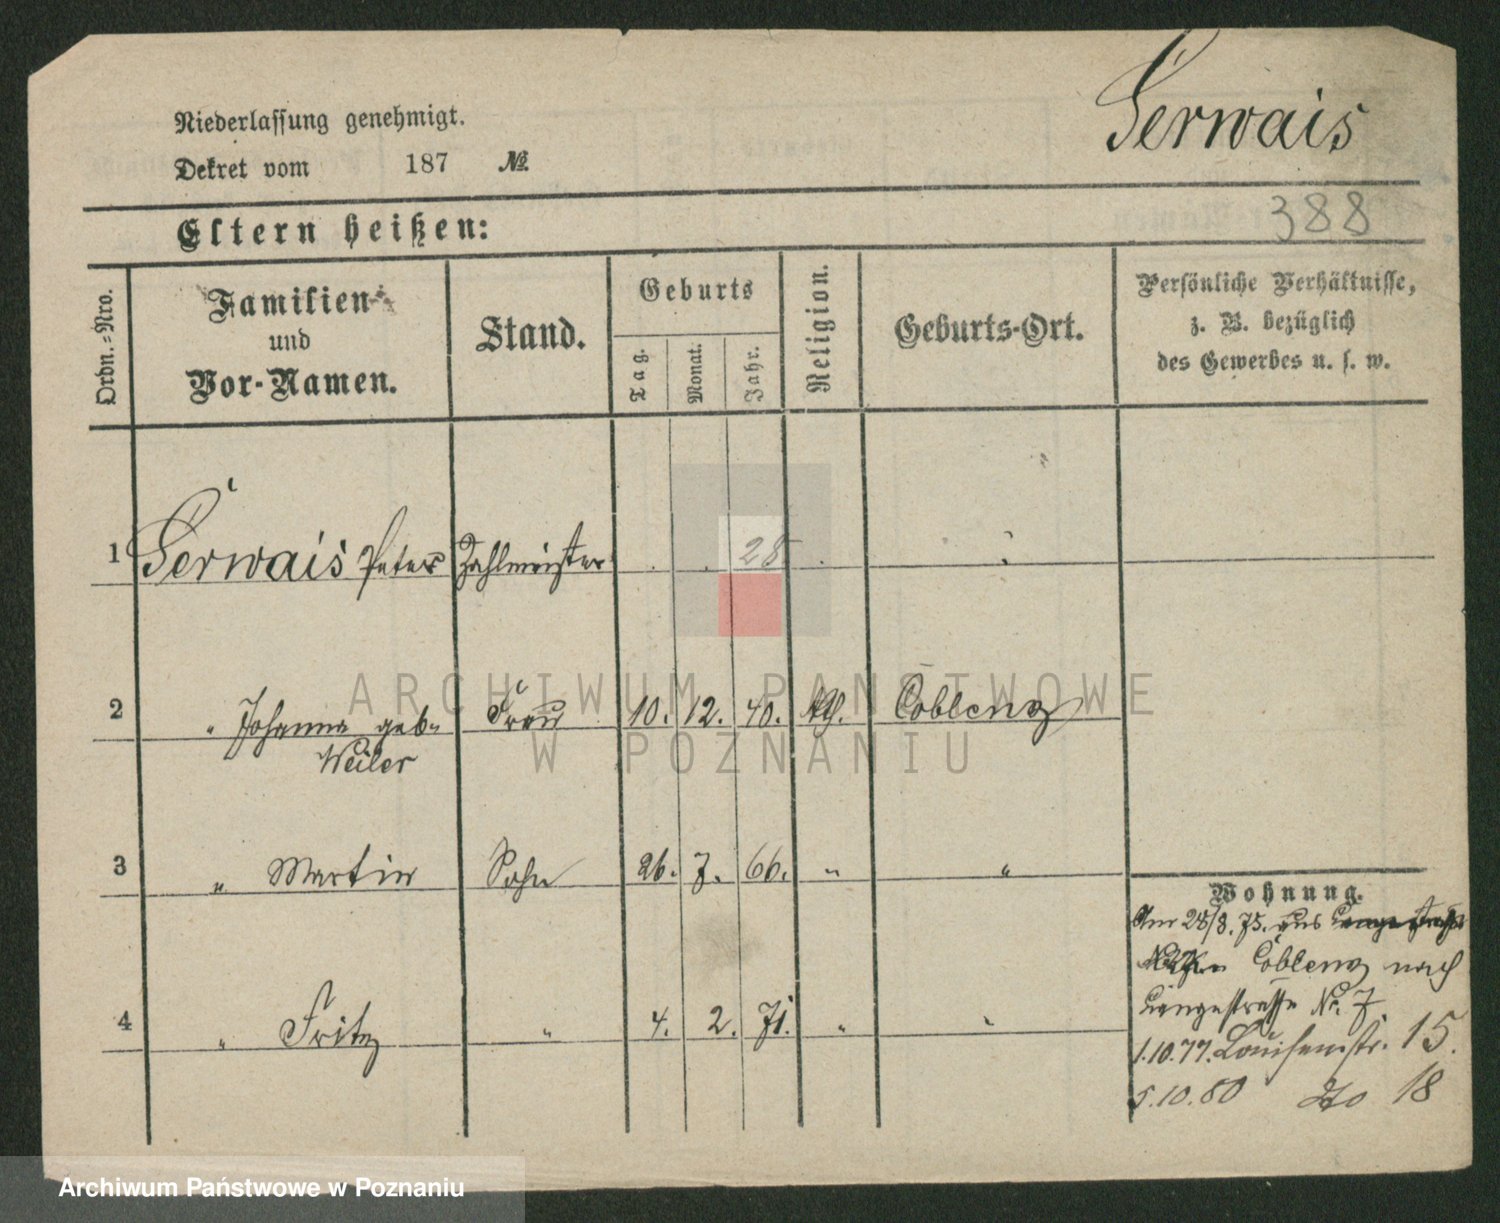 Gerwais
Niederlassung genehmigt.
Dekret vom 187 №
388
Eltern heißen:
Ordn.-Nro.
Familien-
und
Vor-Namen.
Stand.
Geburts
Tag.
Monat.
Jahr.
Religion.
Geburts-Ort.
Persönliche Verhältnisse,
z. B. bezüglich
des Gewerbes u. s. w.
1 Gerwais Peter Zahlmeister . . 28 . .
2 " Johanna geb. Frau 10. 12. 40. kth. Coblenz
Weiler
3 " Martin Sohn 26. 7. 66. " "
4 " Fritz " 4. 2. 71. " "
Wohnung.
Am 28/8. 75. aus
Coblenz nach
Langestrasse No. 7
1.10.77. Louisenstr. 15.
5.10.80 do 18
ARCHIWUM PAŃSTWOWE
W POZNANIU
Archiwum Państwowe w Poznaniu